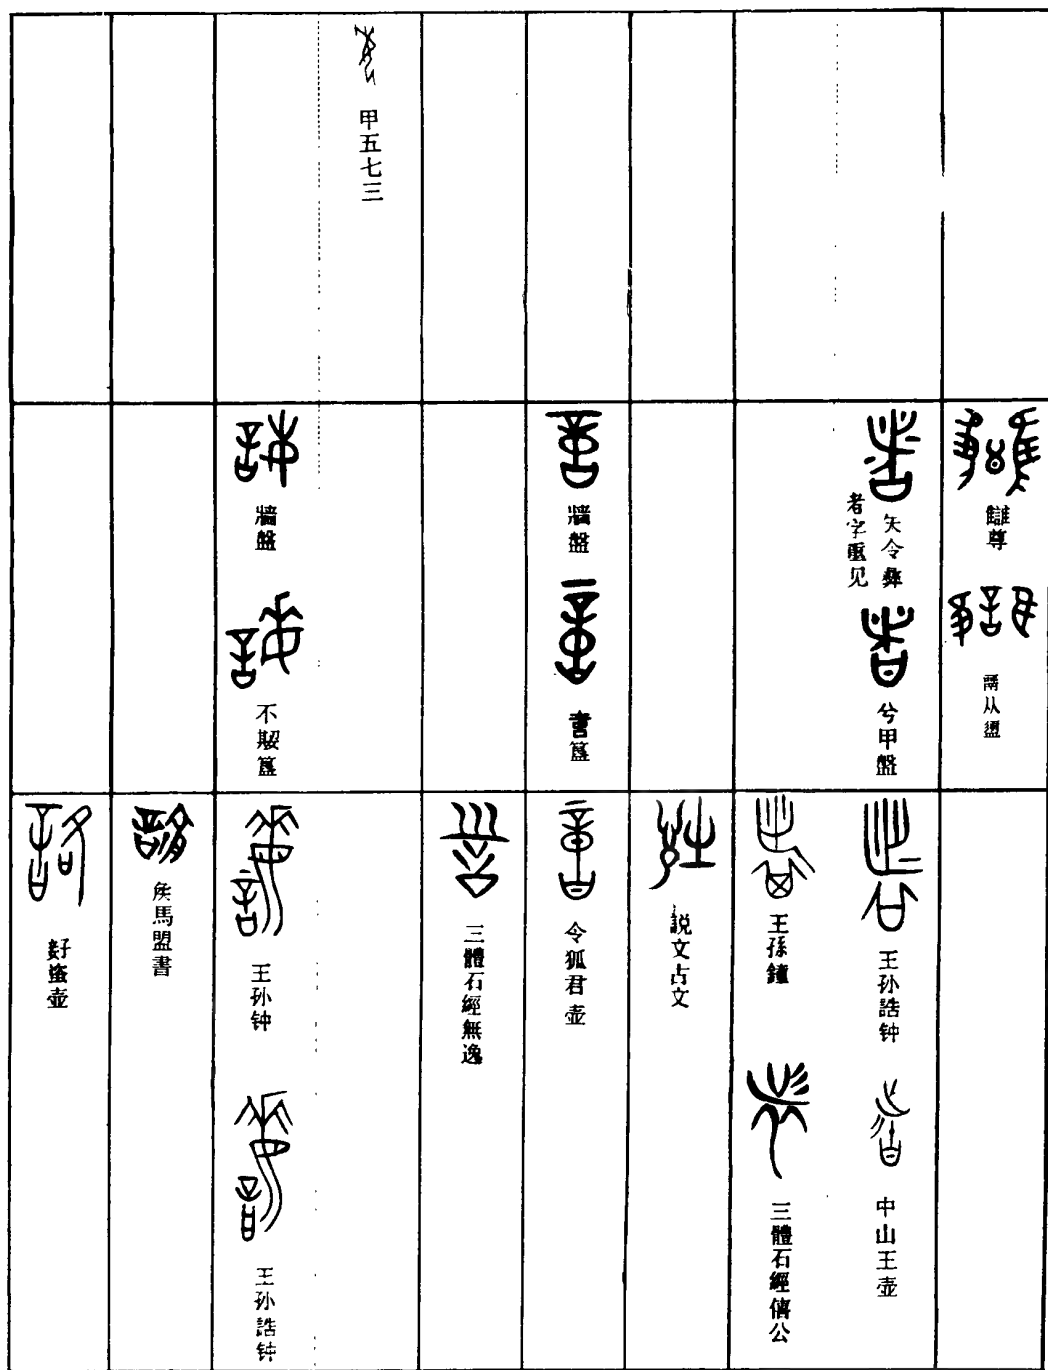 讎尊
鬲从盨
矢令彝
者字重见
兮甲盤
王孙誥钟
中山王壶
王孫鐘
三體石經僖公
説文古文
牆盤
簋
令狐君壶
三體石經無逸
甲五七三
牆盤
不㠱簋
王孙钟
王孙誥钟
侯馬盟書
壶